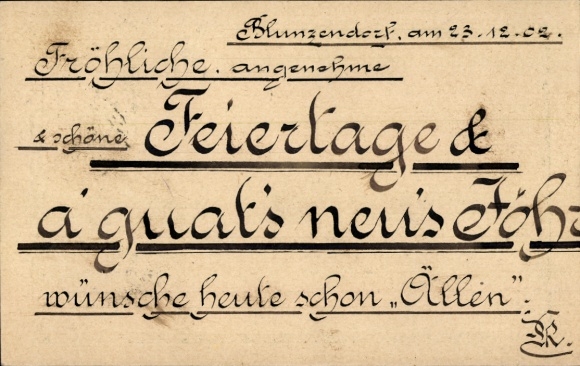 Blunzendorf, am 23.12.02.
Fröhliche, angenehme
& schöne Feiertage &
a' guat's neu's Föhr
wünsche heute schon „Ällen".
R.